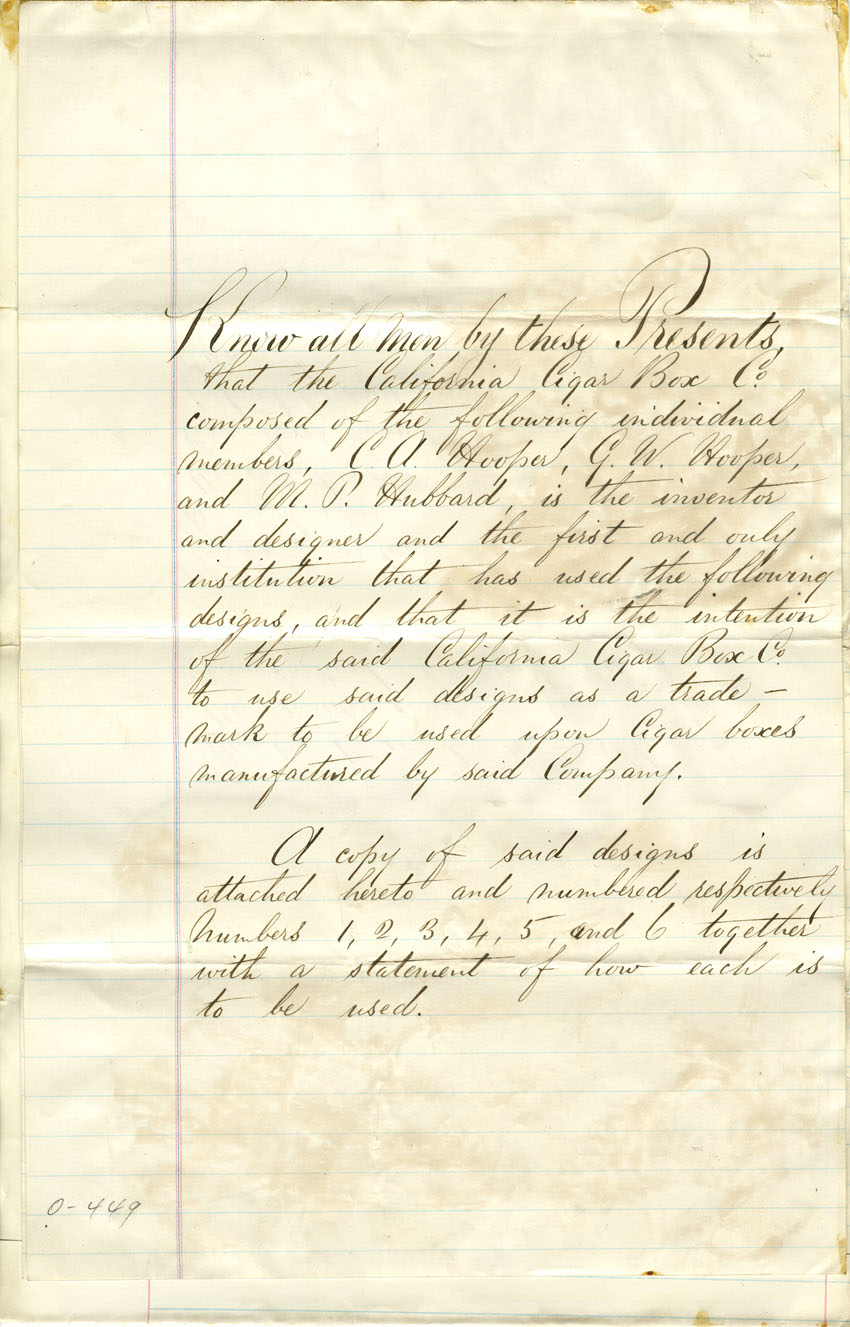 Know all men by these Presents,
that the California Cigar Box Co.
composed of the following individual
members, C. A. Hooper, G. W. Hooper,
and M. P. Hubbard, is the inventor
and designer and the first and only
institution that has used the following
designs, and that it is the intention
of the said California Cigar Box Co.
to use said designs as a trade -
mark to be used upon Cigar boxes
manufactured by said Company.
A copy of said designs is
attached hereto and numbered respectively
Numbers 1, 2, 3, 4, 5, and 6 together
with a statement of how each is
to be used.
0-449